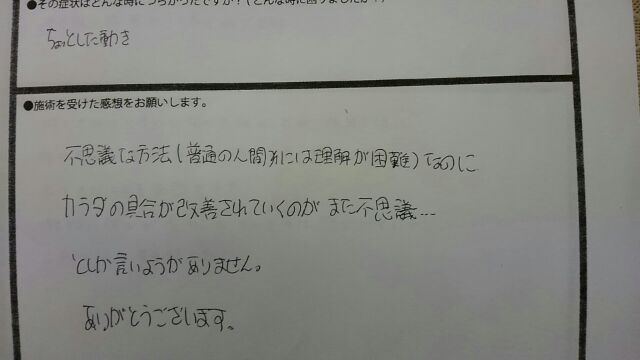 ●その症状はどんな時につらかったですか？（どんな時に困りましたか？）
ちょっとした動き
●施術を受けた感想をお願いします。
不思議な方法（普通の人間には理解が困難）なのに
カラダの具合が改善されていくのがまた不思議…
としか言いようがありません。
ありがとうございます。